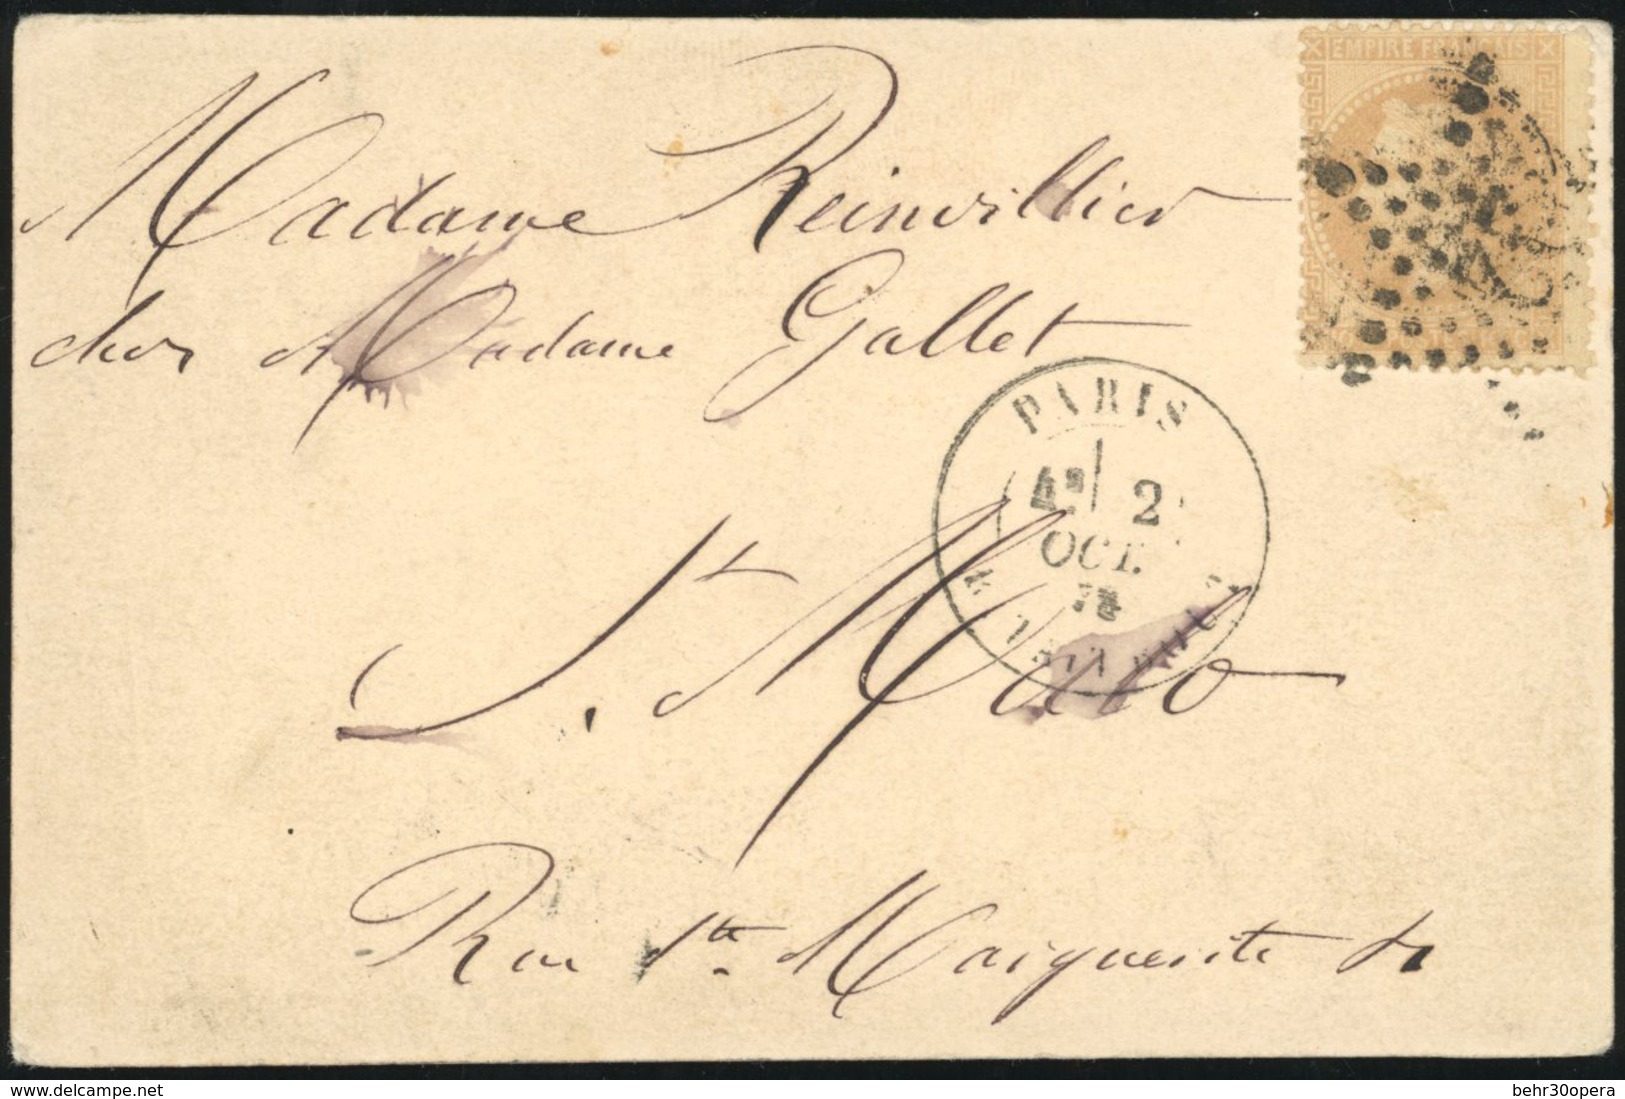 EMPIRE FRANÇAIS
Madame Reinvillier
chez Madame Gallet
PARIS
2
OCT.
St. Malo
Rue Ste Marguerite
www.delcampe.net
behr30opera